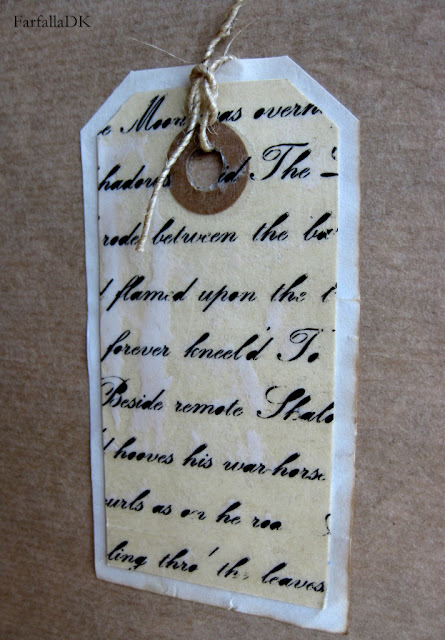 FarfallaDK
e Moon was overh
hadows id The
rode between the ba
flamed upon the
forever kneel'd To
Beside remote Shalo
hooves his war-horse
urls as on he roa
ling thro' the leaves